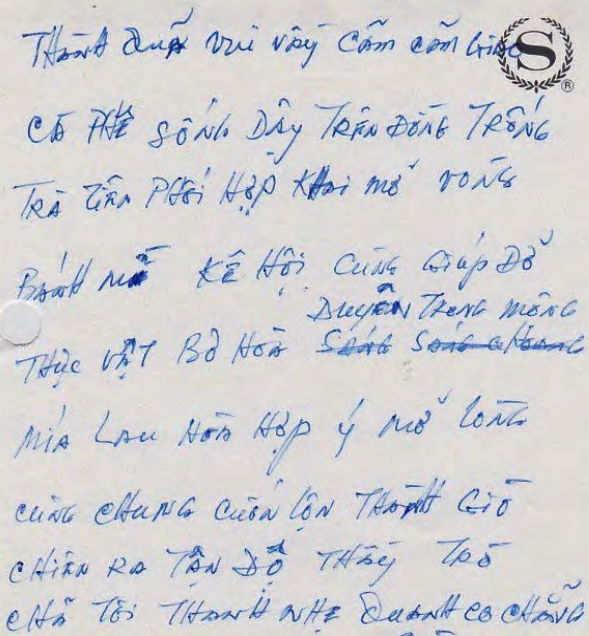 THÀNH QUẢ VUI VẦY CẢM CẢM
S
®
CÀ PHÊ SỐNG DẬY TRÊN ĐỒNG TRỐNG
TRÀ TIÊN PHỐI HỢP KHAI MỞ VÒNG
BÁNH KẾ HỘI CÙNG GIÚP ĐỠ
DUYÊN TRONG MỘNG
THỰC VẬT BỜ HOÀ
MÍA LAU HÒA HỢP Ý MỞ LÒNG
CÙNG CHUNG CUỐN LỘN THÀNH GIÓ
CHIÊN RA TẬN ĐỘ THẦY TRÒ
CHẢ TÔI THANH NHẸ QUANH CO CHẲNG